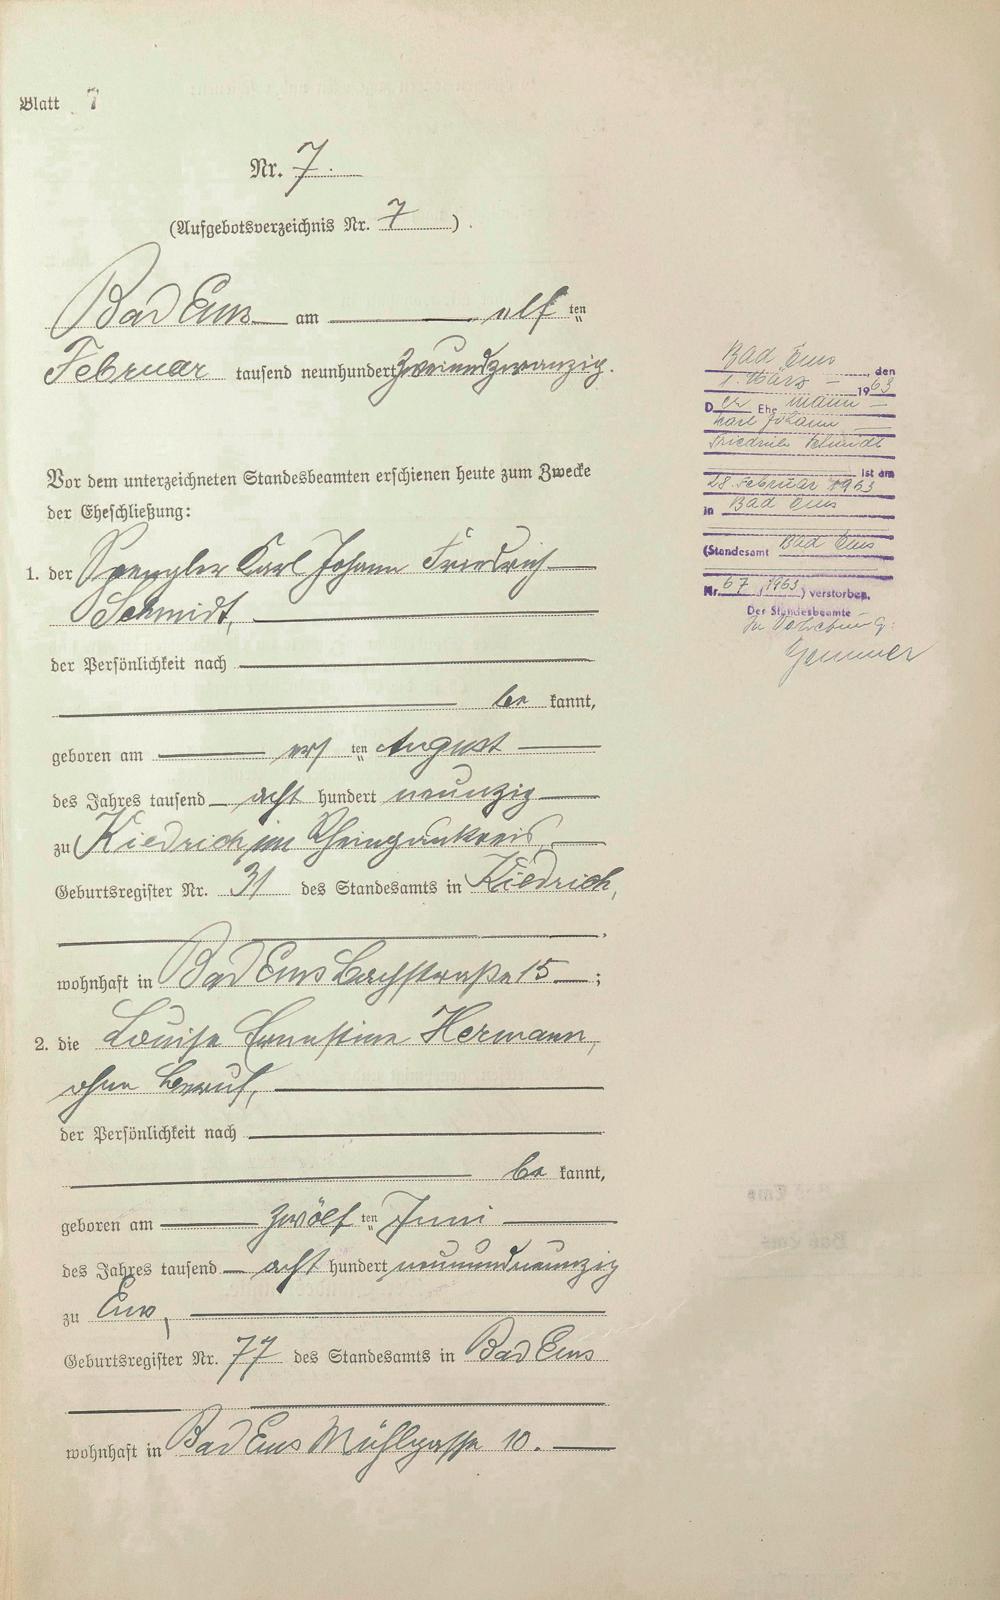 Blatt 7
Nr. 7.
(Aufgebotsverzeichnis Nr. 7).
Bad Ems am elf ten
Februar tausend neunhundert zweiundzwanzig.
Vor dem unterzeichneten Standesbeamten erschienen heute zum Zwecke
der Eheschließung:
1. der Spengler Karl Johann Friedrich
Schmidt,
der Persönlichkeit nach
be kannt,
geboren am ers ten August
des Jahres tausend acht hundert neunzig
zu Kiedrich im Rheingaukreis,
Geburtsregister Nr. 31 des Standesamts in Kiedrich,
wohnhaft in Bad Ems Bachstraße 15 ;
2. die Louise Ernestine Hermann,
ohne Beruf,
der Persönlichkeit nach
be kannt,
geboren am zwölf ten Juni
des Jahres tausend acht hundert neunundneunzig
zu Ems,
Geburtsregister Nr. 77 des Standesamts in Bad Ems
wohnhaft in Bad Ems Mühlgasse 10.
Bad Ems, den
1. März 1963
Der Ehemann
Karl Johann
Friedrich Schmidt
ist am
28. Februar 1963
in Bad Ems
(Standesamt Bad Ems
Nr. 67, 1963) verstorben.
Der Standesbeamte
In Vertretung: